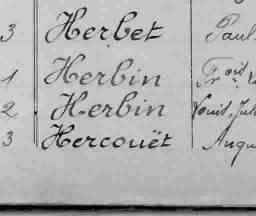 3 Herbet Paul
1 Herbin Fr.oit
2 Herbin Louis, Jul
3 Hercouët Augu